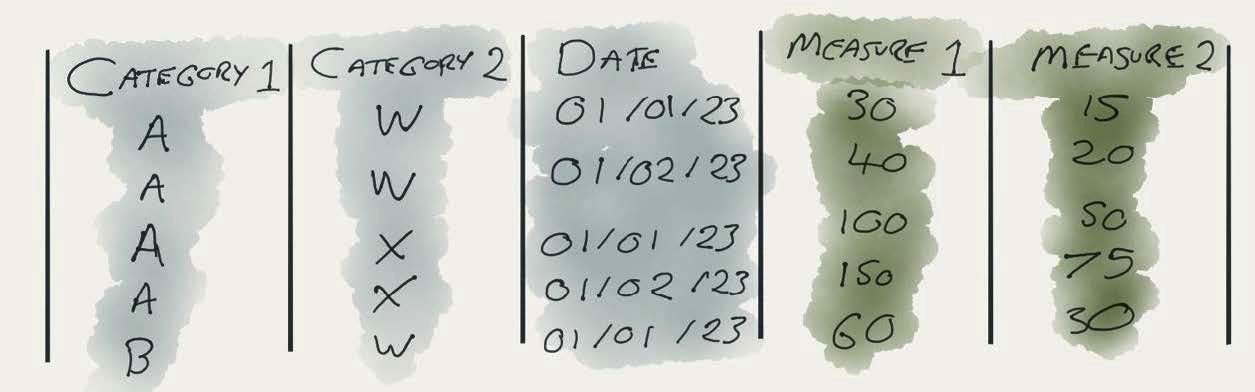 CATEGORY 1 CATEGORY 2 DATE MEASURE 1 MEASURE 2
A W 01/01/23 30 15
A W 01/02/23 40 20
A X 01/01/23 100 50
A X 01/02/23 150 75
B W 01/01/23 60 30